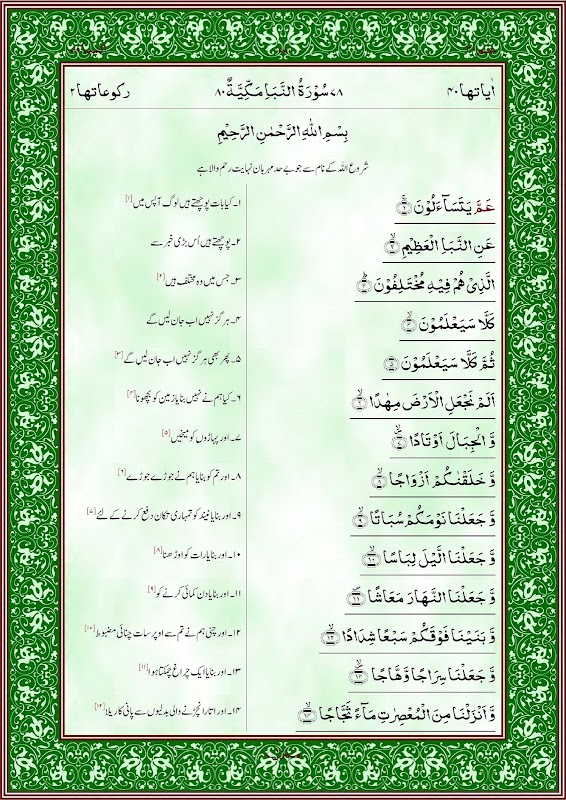 اٰیاتها ۴۰ ۷۸ سُوْرَةُ النَّبَاِ مَكِّیَّةٌ ۸۰ ركوعاتها ۲
بِسْمِ اللهِ الرَّحْمٰنِ الرَّحِیْمِ
شروع اللہ کے نام سے جو بے حد مہربان نہایت رحم والا ہے
عَمَّ یَتَسَآءَلُوْنَ ۚ﴿۱﴾ ۱۔ کیا بات پوچھتے ہیں لوگ آپس میں [۱]
عَنِ النَّبَاِ الْعَظِیْمِ ۙ﴿۲﴾ ۲۔ پوچھتے ہیں اُس بڑی خبر سے
الَّذِیْ هُمْ فِیْهِ مُخْتَلِفُوْنَ ؕ﴿۳﴾ ۳۔ جس میں وہ مختلف ہیں [۲]
كَلَّا سَیَعْلَمُوْنَ ۙ﴿۴﴾ ۴۔ ہرگز نہیں اب جان لیں گے
ثُمَّ كَلَّا سَیَعْلَمُوْنَ ﴿۵﴾ ۵۔ پھر بھی ہرگز نہیں اب جان لیں گے [۳]
اَلَمْ نَجْعَلِ الْاَرْضَ مِهٰدًا ۙ﴿۶﴾ ۶۔ کیا ہم نے نہیں بنایا زمین کو بچھونا [۴]
وَّ الْجِبَالَ اَوْتَادًا ۙ﴿۷﴾ ۷۔ اور پہاڑوں کو میخیں [۵]
وَّ خَلَقْنٰكُمْ اَزْوَاجًا ۙ﴿۸﴾ ۸۔ اور تم کو بنایا ہم نے جوڑے جوڑے [۶]
وَّ جَعَلْنَا نَوْمَكُمْ سُبَاتًا ۙ﴿۹﴾ ۹۔ اور بنایا نیند کو تمہاری تکان دفع کرنے کے لئے [۷]
وَّ جَعَلْنَا الَّیْلَ لِبَاسًا ۙ﴿۱۰﴾ ۱۰۔ اور بنایا رات کو اوڑھنا [۸]
وَّ جَعَلْنَا النَّهَارَ مَعَاشًا ۪﴿۱۱﴾ ۱۱۔ اور بنایا دن کمائی کرنے کو [۹]
وَّ بَنَیْنَا فَوْقَكُمْ سَبْعًا شِدَادًا ۙ﴿۱۲﴾ ۱۲۔ اور چنی ہم نے تم سے اوپر سات چنائی مضبوط [۱۰]
وَّ جَعَلْنَا سِرَاجًا وَّهَّاجًا ۪ۙ﴿۱۳﴾ ۱۳۔ اور بنایا ایک چراغ چمکتا ہوا [۱۱]
وَّ اَنْزَلْنَا مِنَ الْمُعْصِرٰتِ مَآءً ثَجَّاجًا ۙ﴿۱۴﴾ ۱۴۔ اور اتارا نچڑنے والی بدلیوں سے پانی کا ریلا [۱۲]